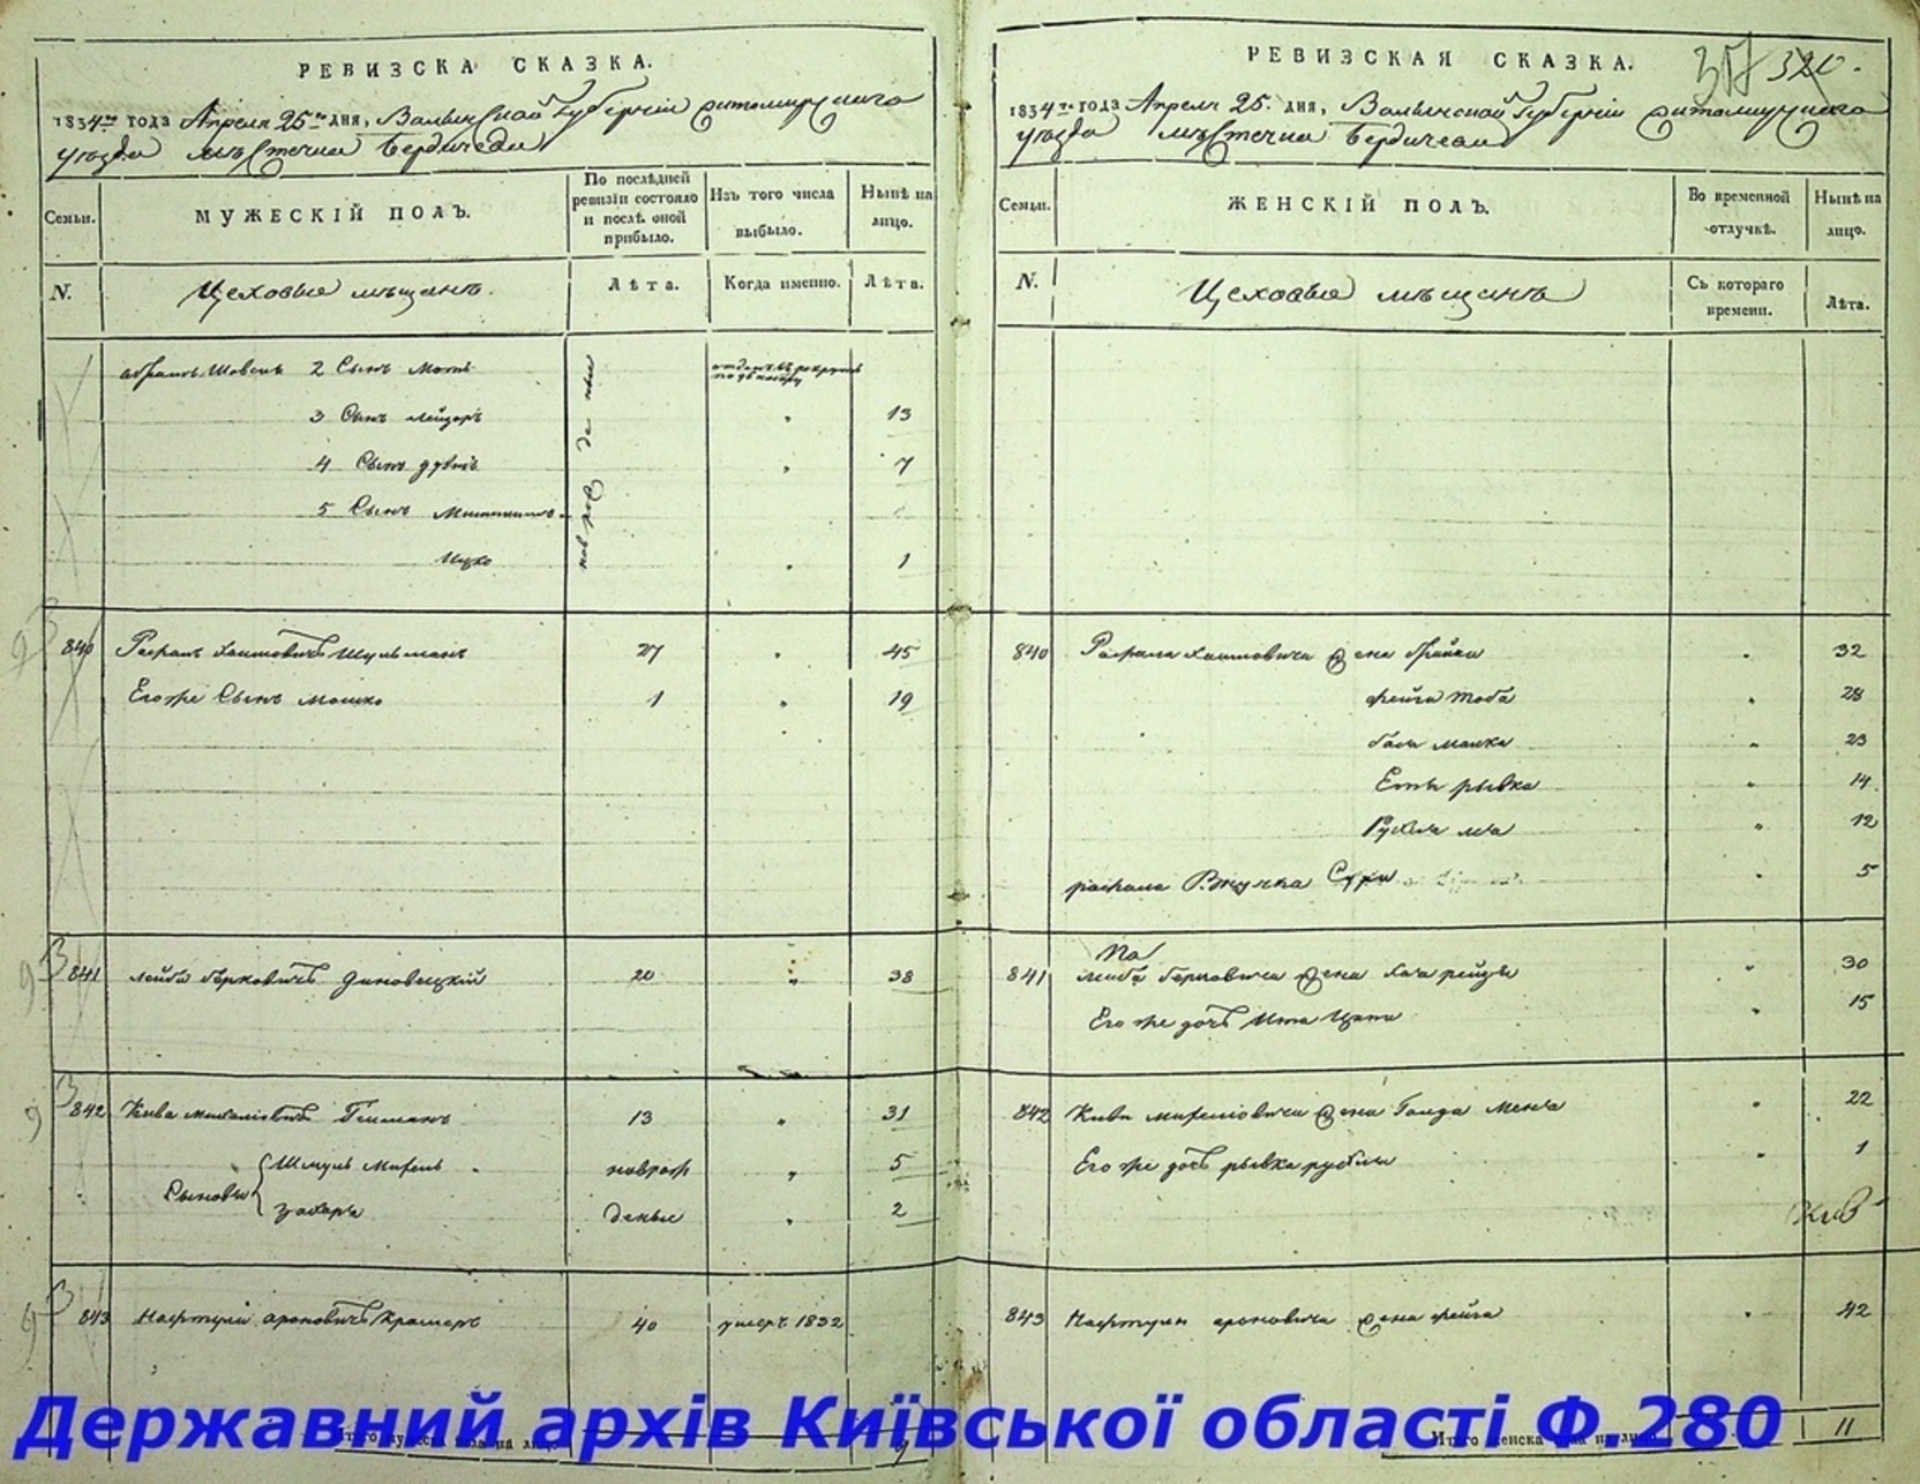 РЕВИЗСКА СКАЗКА.
1834го года Апреля 25го дня, Волынской Губернiи Житомирскаго
уѣзда мѣстечка Бердичева
Семьи.
МУЖЕСКIЙ ПОЛЪ.
По послѣдней ревизiи состояло и послѣ оной прибыло.
Изъ того числа выбыло.
Нынѣ на лицо.
N.
Цеховые мѣщанъ.
Лѣта.
Когда именно.
Лѣта.
2 Сынъ
отданъ въ рекруты
3 Сынъ Лейзеръ " 13
4 Сынъ " 7
5 Сынъ
Ицко " 1
новорожденые
840 Рафаилъ Хаимовичъ Шульманъ 27 " 45
Его же Сынъ Мошко 1 " 19
841 Лейба Берковичъ Диновецкiй 20 " 38
842 Кива Михелiовичъ 13 " 31
Сыновья Шмуль Михель новорож " 5
Захарь деные " 2
843 Нафтули Ароновичъ Крамеръ 40 умеръ 1832
Итого мужеска пола на лицо 9
РЕВИЗСКАЯ СКАЗКА.
317 320.
1834го года Апреля 25. дня, Волынской Губернiи Житомирскаго
уѣзда мѣстечка Бердичева
Семьи.
ЖЕНСКIЙ ПОЛЪ.
Во временной отлучкѣ.
Нынѣ на лицо.
N.
Цеховые мѣщанъ
Съ котораго времени.
Лѣта.
840 Рафаила Хаимовича жена Фрайка " 32
Фейга Тоба " 28
Бася Малка " 23
Естъ рывка " 14
Рухля " 12
рафаила Внучка Сура " 5
841 Лейба Берковича жена Хая рейзя " 30
Его же дочь Ита " 15
842 Киви Михелiовича жена Голда Менча " 22
Его же дочь рывка рухля " 1
843 Нафтули ароновича жена фейга " 42
Итого женска пола на лицо 11
Державний архів Київської області Ф.280